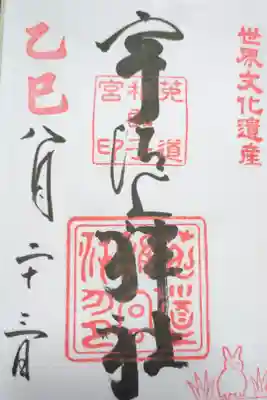 世界文化遺産
宇治上神社
菟道
宮印
乙巳八月二十三日